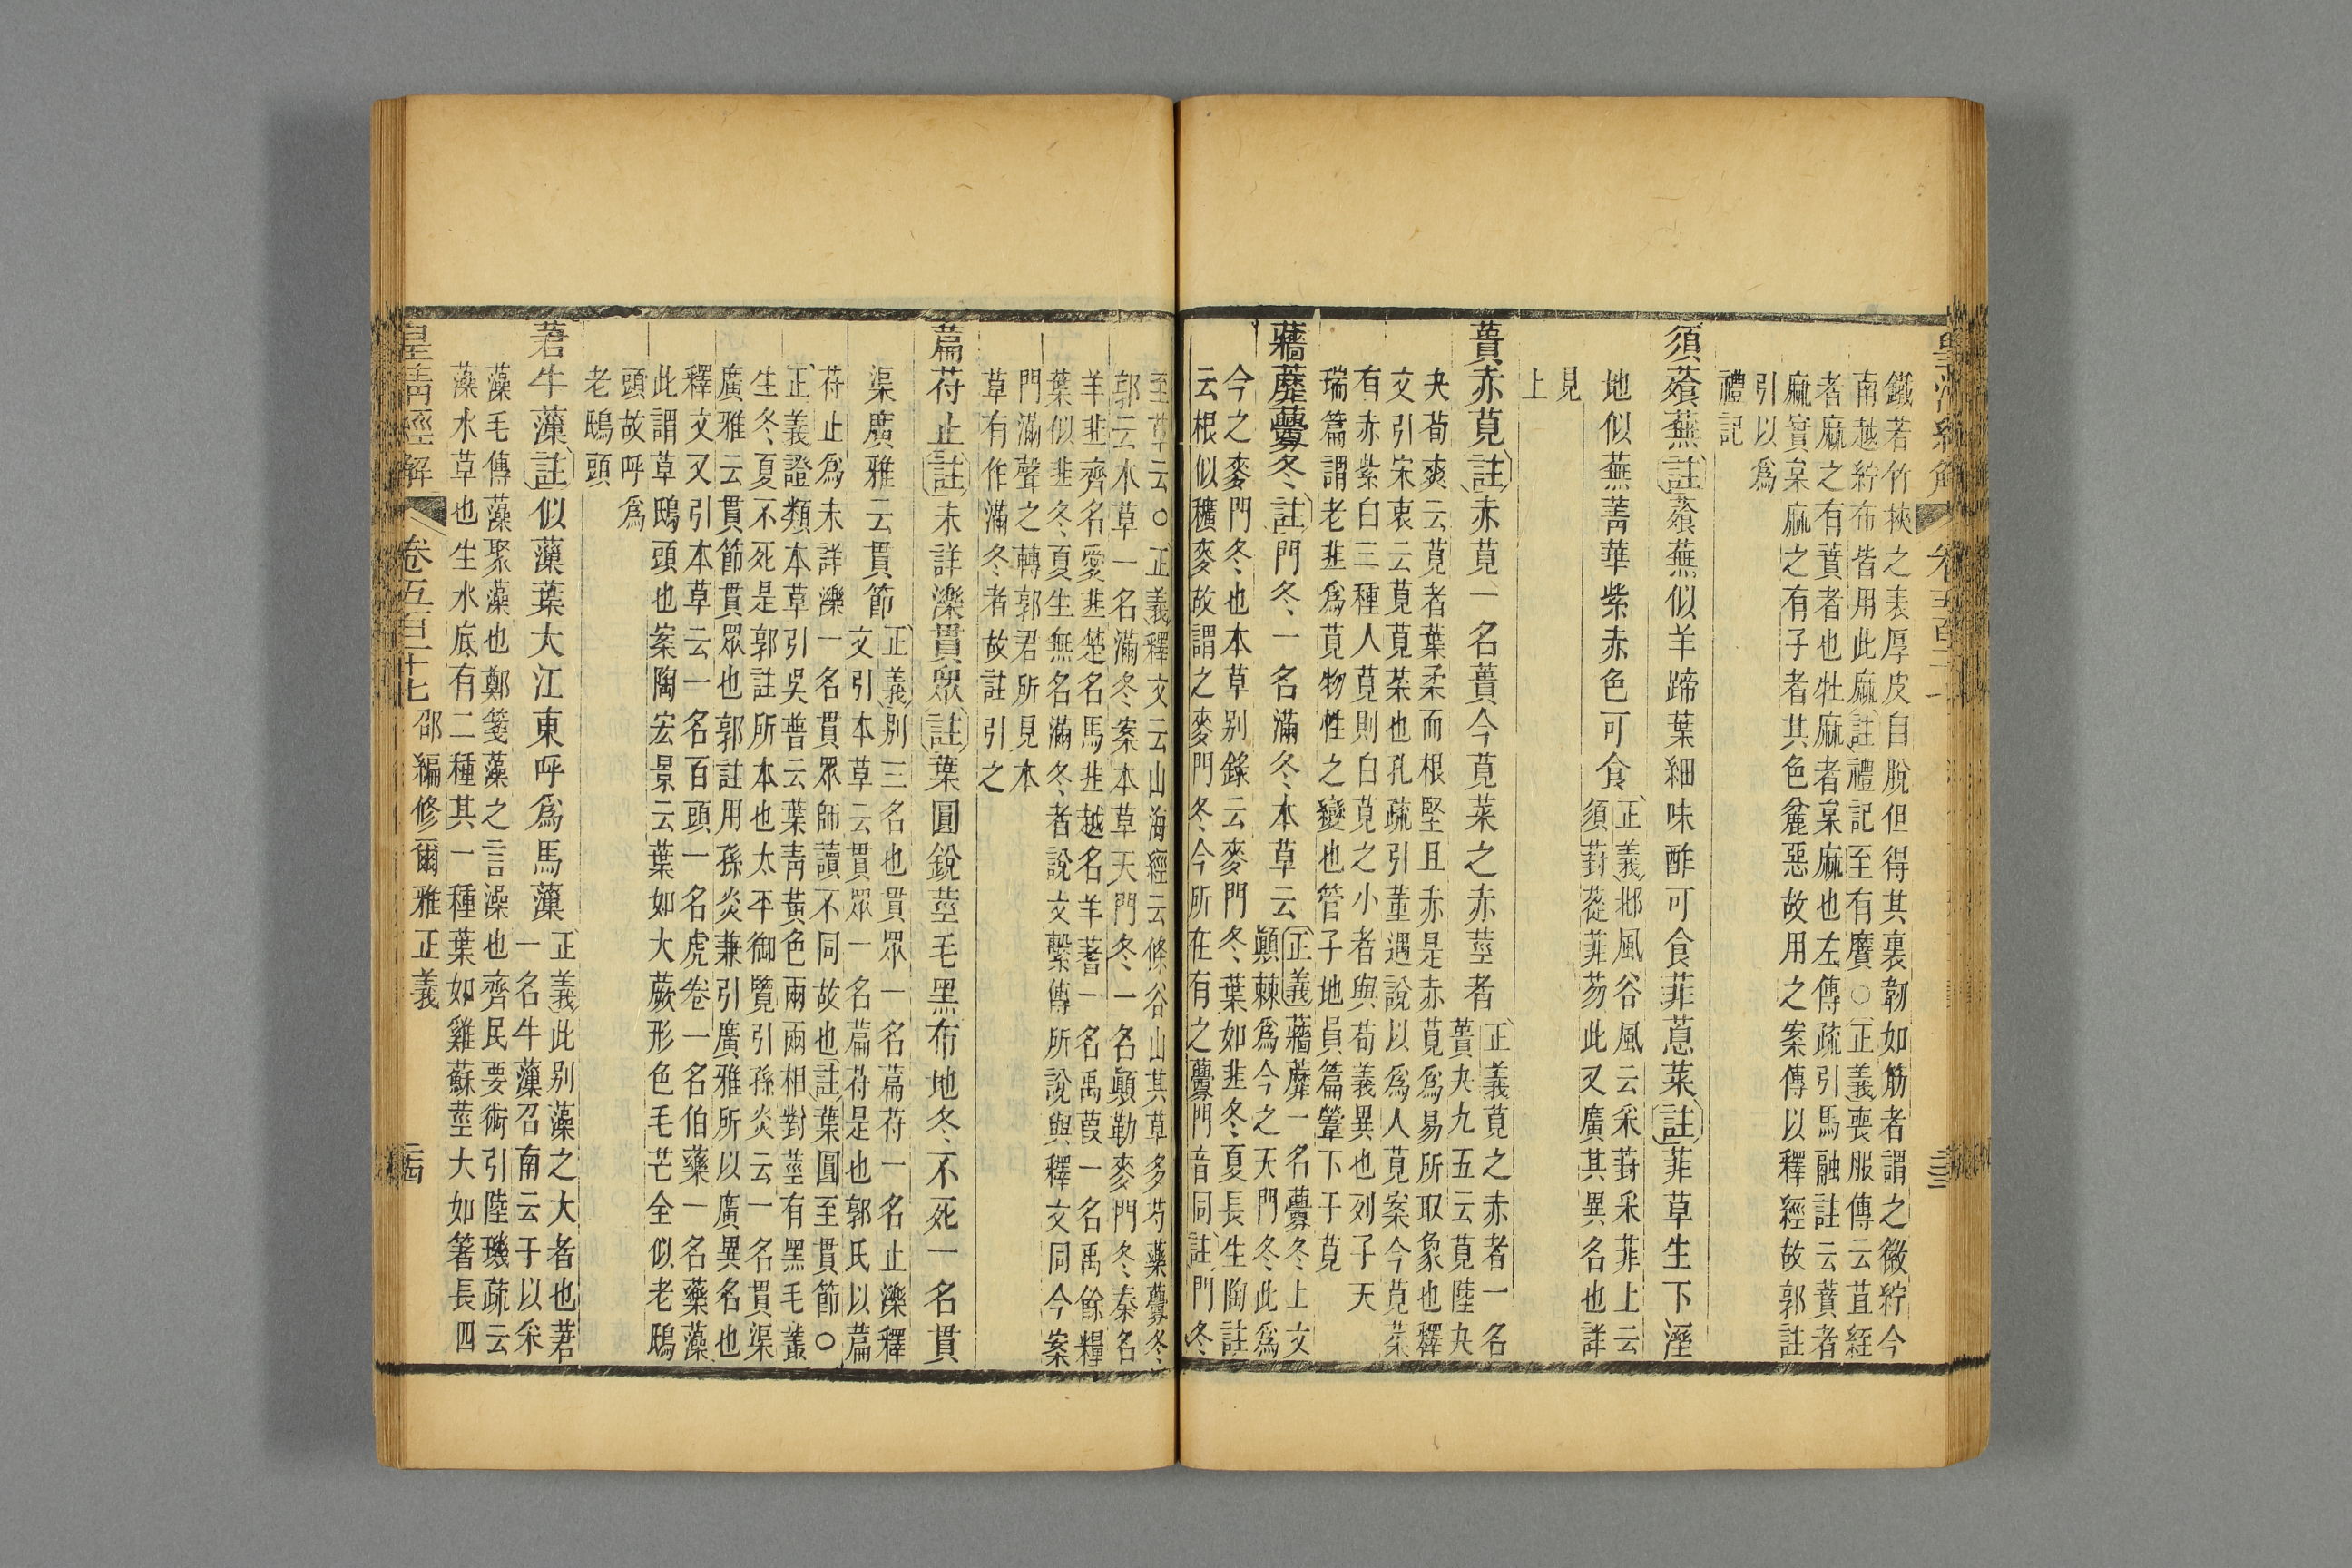 鐵若竹挾之表厚皮自脫但得其裏韌如筋者謂之徽紵今
南越紵布皆用此麻註禮記至有黂○正義喪服傳云苴絰
者麻之有蕡者也牡麻者枲麻也左傳疏引馬融註云蕡者
麻實枲麻之有子者其色麤惡故用之案傳以釋經故郭註
引以爲
禮記
須薞蕪註薞蕪似羊蹄葉細味酢可食菲蒠菜註菲草生下溼
地似蕪菁華紫赤色可食
正義邶風谷風云采葑采菲上云
須葑蓯菲芴此又廣其異名也詳
見
上
蕢赤莧註赤莧一名蕢今莧菜之赤莖者
正義莧之赤者一名
蕢夬九五云莧陸夬
夬荀爽云莧者葉柔而根堅且赤是赤莧爲易所取象也釋
文引宋衷云莧莧菜也孔疏引董遇說以爲人莧案今莧菜
有赤紫白三種人莧則白莧之小者與荀義異也列子天
瑞篇謂老韭爲莧物性之變也管子地員篇蘩下于莧
蘠蘼虋冬註門冬一名滿冬本草云
正義蘠蘼一名虋冬上文
顛棘爲今之天門冬此爲
今之麥門冬也本草别錄云麥門冬葉如韭冬夏長生陶註
云根似穬麥故謂之麥門冬今所在有之虋門音同註門冬
至草云○正義釋文云山海經云條谷山其草多芍藥虋冬
郭云本草一名滿冬案本草天門冬一名顛勒麥門冬秦名
羊韭齊名愛韭楚名馬韭越名羊蓍一名禹葭一名禹餘糧
葉似韭冬夏生無名滿冬者說文繫傳所說與釋文同今案
門滿聲之轉郭君所見本
草有作滿冬者故註引之
萹苻止註未詳濼貫眾註葉圓銳莖毛黑布地冬不死一名貫
渠廣雅云貫節
正義别三名也貫眾一名萹苻一名止濼釋
文引本草云貫眾一名萹苻是也郭氏以萹
苻止爲未詳濼一名貫眾師讀不同故也註葉圓至貫節○
正義證類本草引吳普云葉青黃色兩兩相對莖有黑毛叢
生冬夏不死是郭註所本也太平御覽引孫炎云一名貫渠
廣雅云貫節貫眾也郭註用孫炎兼引廣雅所以廣異名也
釋文又引本草云一名百頭一名虎卷一名伯藥一名藥藻
此謂草鴟頭也案陶宏景云葉如大蕨形色毛芒全似老鴟
頭故呼爲
老鴟頭
莙牛藻註似藻葉大江東呼爲馬藻
正義此别藻之大者也莙
一名牛藻召南云于以采
藻毛傳藻聚藻也鄭箋藻之言澡也齊民要術引陸璣疏云
藻水草也生水底有二種其一種葉如雞蘇莖大如箸長四
皇清經解
卷五百二十七
邵編修爾雅正義